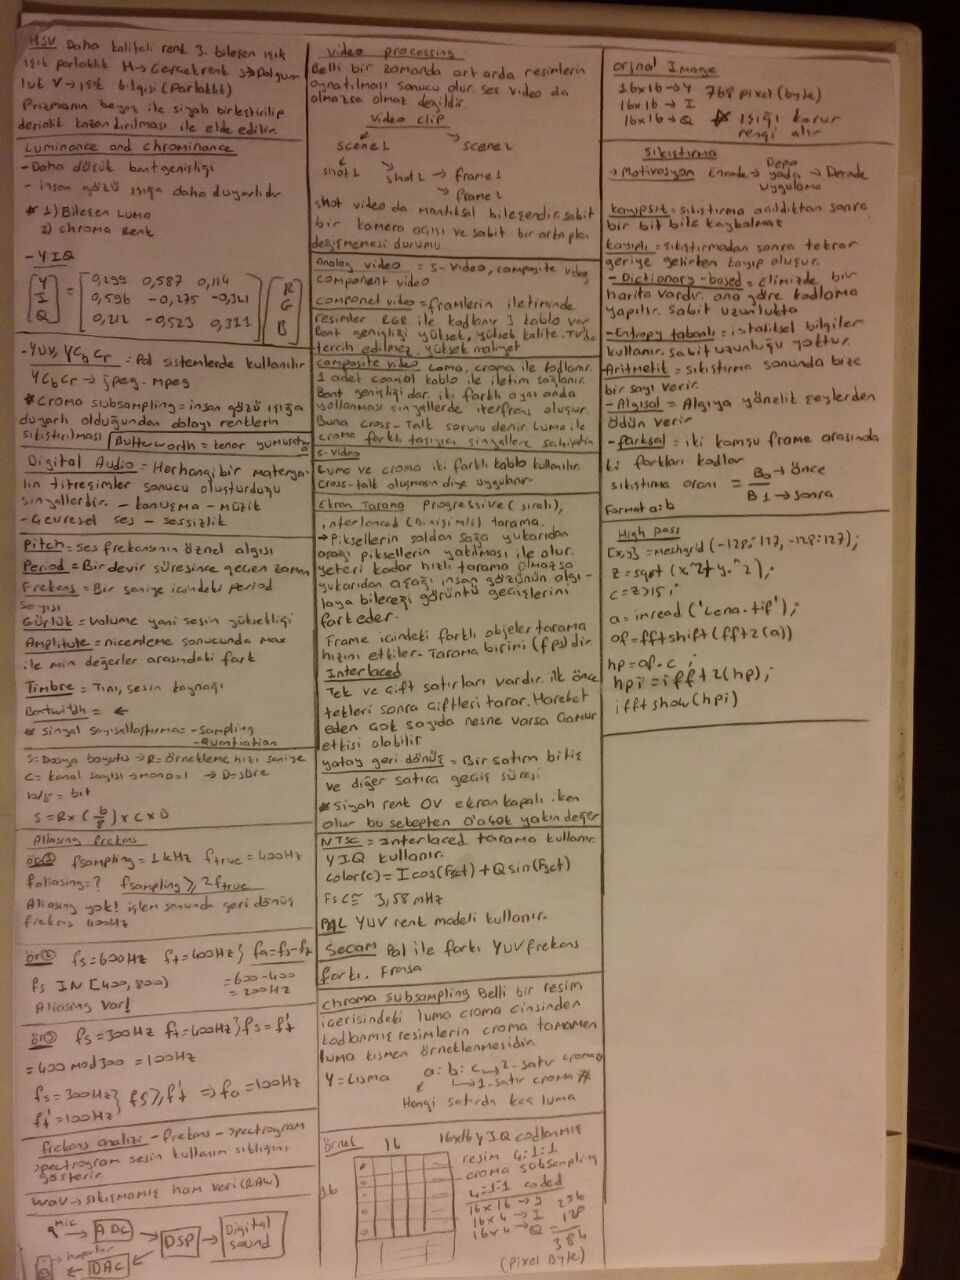 HSV Daha kaliteli renk 3. bileşen ışık
ışık parlaklık H→Gerçek renk S→Dolgun
luk V→ışık bilgisi (Parlaklık)
Prizmanın beyaz ile siyah birleştirilip
derinlik kazandırılması ile elde edilir.
Luminance and chrominance
- Daha düşük bant genişliği
- insan gözü ışığa daha duyarlıdır
* 1) Bileşen Luma
2) chroma Renk
- YIQ
[Y I Q] = [0,299 0,587 0,114
0,596 -0,275 -0,321
0,212 -0,523 0,311] [R G B]
- YUV, YCbCr = Pal sistemlerde kullanılır
YCbCr → jpeg - mpeg
* Croma subsampling = insan gözü ışığa
duyarlı olduğundan dolayı renklerin
sıkıştırılması Butterworth = kenar yumuşatma
Digital Audio = Herhangi bir materya-
lin titreşimler sonucu oluşturduğu
sinyallerdir. - konuşma - müzik
- Çevresel ses - sessizlik
Pitch = Ses frekansının öznel algısı
Period = Bir devir süresince geçen zaman
Frekans = Bir saniye içindeki period
sayısı
Gürlük = Volume yani sesin yüksekliği
Amplitute = nicemleme sonucunda max
ile min değerler arasındaki fark
Timbre = Tını, sesin kaynağı
Bantwitdh = ←
* Sinyal sayısallaştırma = - Sampling
- Quantiation
S = Dosya boyutu → R = örnekleme hızı saniye
C = kanal sayısı → mono = 1 → D = süre
b/8 = bit
S = R x (b/8) x C x D
Aliasing frekans
ör① fsampling = 1 kHz ftrue = 400 Hz
faliasing = ? fsampling ≥ 2 ftrue
Aliasing yok! işlem sonunda geri dönüş
frekans 400Hz
ör② fs = 600 Hz ft = 400 Hz } fa = fs - ft
fs IN [400, 800) = 600 - 400
Aliasing var! = 200 Hz
ör③ fs = 300 Hz ft = 400 Hz } fs = f't
= 400 mod 300 = 100 Hz
fs = 300 Hz } fs ≥ f't ⇒ fa = 100 Hz
f't = 100 Hz
Frekans analizi - frekans - spectrogram
spectrogram sesin kullanım sıklığını
gösterir.
wav → sıkışmamış ham veri (RAW)
mic → ADC → DSP → Digital sound
hoparlör ← DAC
Video processing
Belli bir zamanda art arda resimlerin
oynatılması sonucu olur. Ses video da
olmazsa olmaz değildir.
Video clip
scene1 scene2
shot1 shot2 → frame1
→ frame2
shot video da mantıksal bileşendir. sabit
bir kamera açısı ve sabit bir arka plan
değişmemesi durumu
Analog video = S-Video, composite video,
component video
Componet video = framlerin iletiminde
resimler RGB ile kodlanır 3 kablo var
Bant genişliği yüksek, yüksek kalite. TV'de
tercih edilmez, yüksek maliyet
Composite video Luma, croma ile kodlanır.
1 adet coaxial kablo ile iletim sağlanır.
Bant genişliği dar. iki farklı aynı anda
yollanması sinyallerde iterfrans oluşur.
Buna cross-talk sorunu denir. Luma ile
croma farklı taşıyıcı sinyallere sahiptir
S-video
Luma ve croma iki farklı kablo kullanılır.
cross-talk oluşmasın diye uygulanır
Ekran Tarama Progressive (sıralı),
, interlanced (Binişimli) tarama.
→ Piksellerin soldan sağa yukarıdan
aşağı piksellerin yakılması ile olur.
yeteri kadar hızlı tarama olmazsa
yukarıdan aşağı insan gözünün algı-
layabileceği görüntü geçişlerini
fark eder.
Frame içindeki farklı objeler tarama
hızını etkiler. Tarama birimi (fps)dir
Interlaced
Tek ve Çift satırları vardır. ilk önce
tekleri sonra çiftleri tarar. Hareket
eden çok sayıda nesne varsa Çamur
etkisi olabilir
yatay geri dönüş = Bir satırın bitiş
ve diğer satıra geçiş süresi
* Siyah renk 0V ekran kapalı iken
olur bu sebepten 0'a çok yakın değer
NTSC = Interlaced tarama kullanır.
YIQ kullanır.
Color(c) = I cos(Fsct) + Q sin(Fsct)
Fsc ≅ 3,58 mHz
PAL YUV renk modeli kullanır.
Secam Pal ile farkı YUV frekans
farkı. Fransa
Chroma subsampling Belli bir resim
içerisindeki luma croma cinsinden
kodlanmış resimlerin croma tamamen
luma kısmen örneklenmesidir.
Y = Luma a : b : c → 2. satır croma
→ 1. satır croma
Hangi satırda kaç luma
örnek 16 16x16 YIQ codlanmış
16 resim 4:1:1
croma subsampling
4:1:1 coded
16x16 → Y 256
16x4 → I 128
16x4 → Q 384
(Pixel Byte)
Orjnal Image
16x16 → Y 768 pixel (byte)
16x16 → I
16x16 → Q * Işığı korur
rengi alır
Sıkıştırma
→ Motivasyon Encode → Depo yada uygulama → Decode
kayıpsız = sıkıştırma açıldıktan sonra
bir bit bile kaybolmaz
kayıplı = sıkıştırmadan sonra tekrar
geriye gelirken kayıp oluşur.
- Dictionary-based = Elimizde bir
harita vardır. ona göre kodlama
yapılır. Sabit uzunlukta
- Entropy tabanlı = istatiksel bilgiler
kullanır. sabit uzunluğu yoktur.
Aritmetik = sıkıştırma sonunda bize
bir sayı verir.
- Algısal = Algıya yönelik şeylerden
ödün verir
- farksal = iki komşu frame arasında
ki farkları kodlar
sıkıştırma oranı = B0 → önce
B1 → sonra
Format a:b
High pass
[x,y] = meshgrid (-128:127, -128:127);
z = sqrt (x.^2 + y.^2);
c = z > 15;
a = imread ('Lena.tif');
af = fftshift (fft2(a))
hp = af.c;
hpi = ifft2 (hp);
ifftshow (hpi)